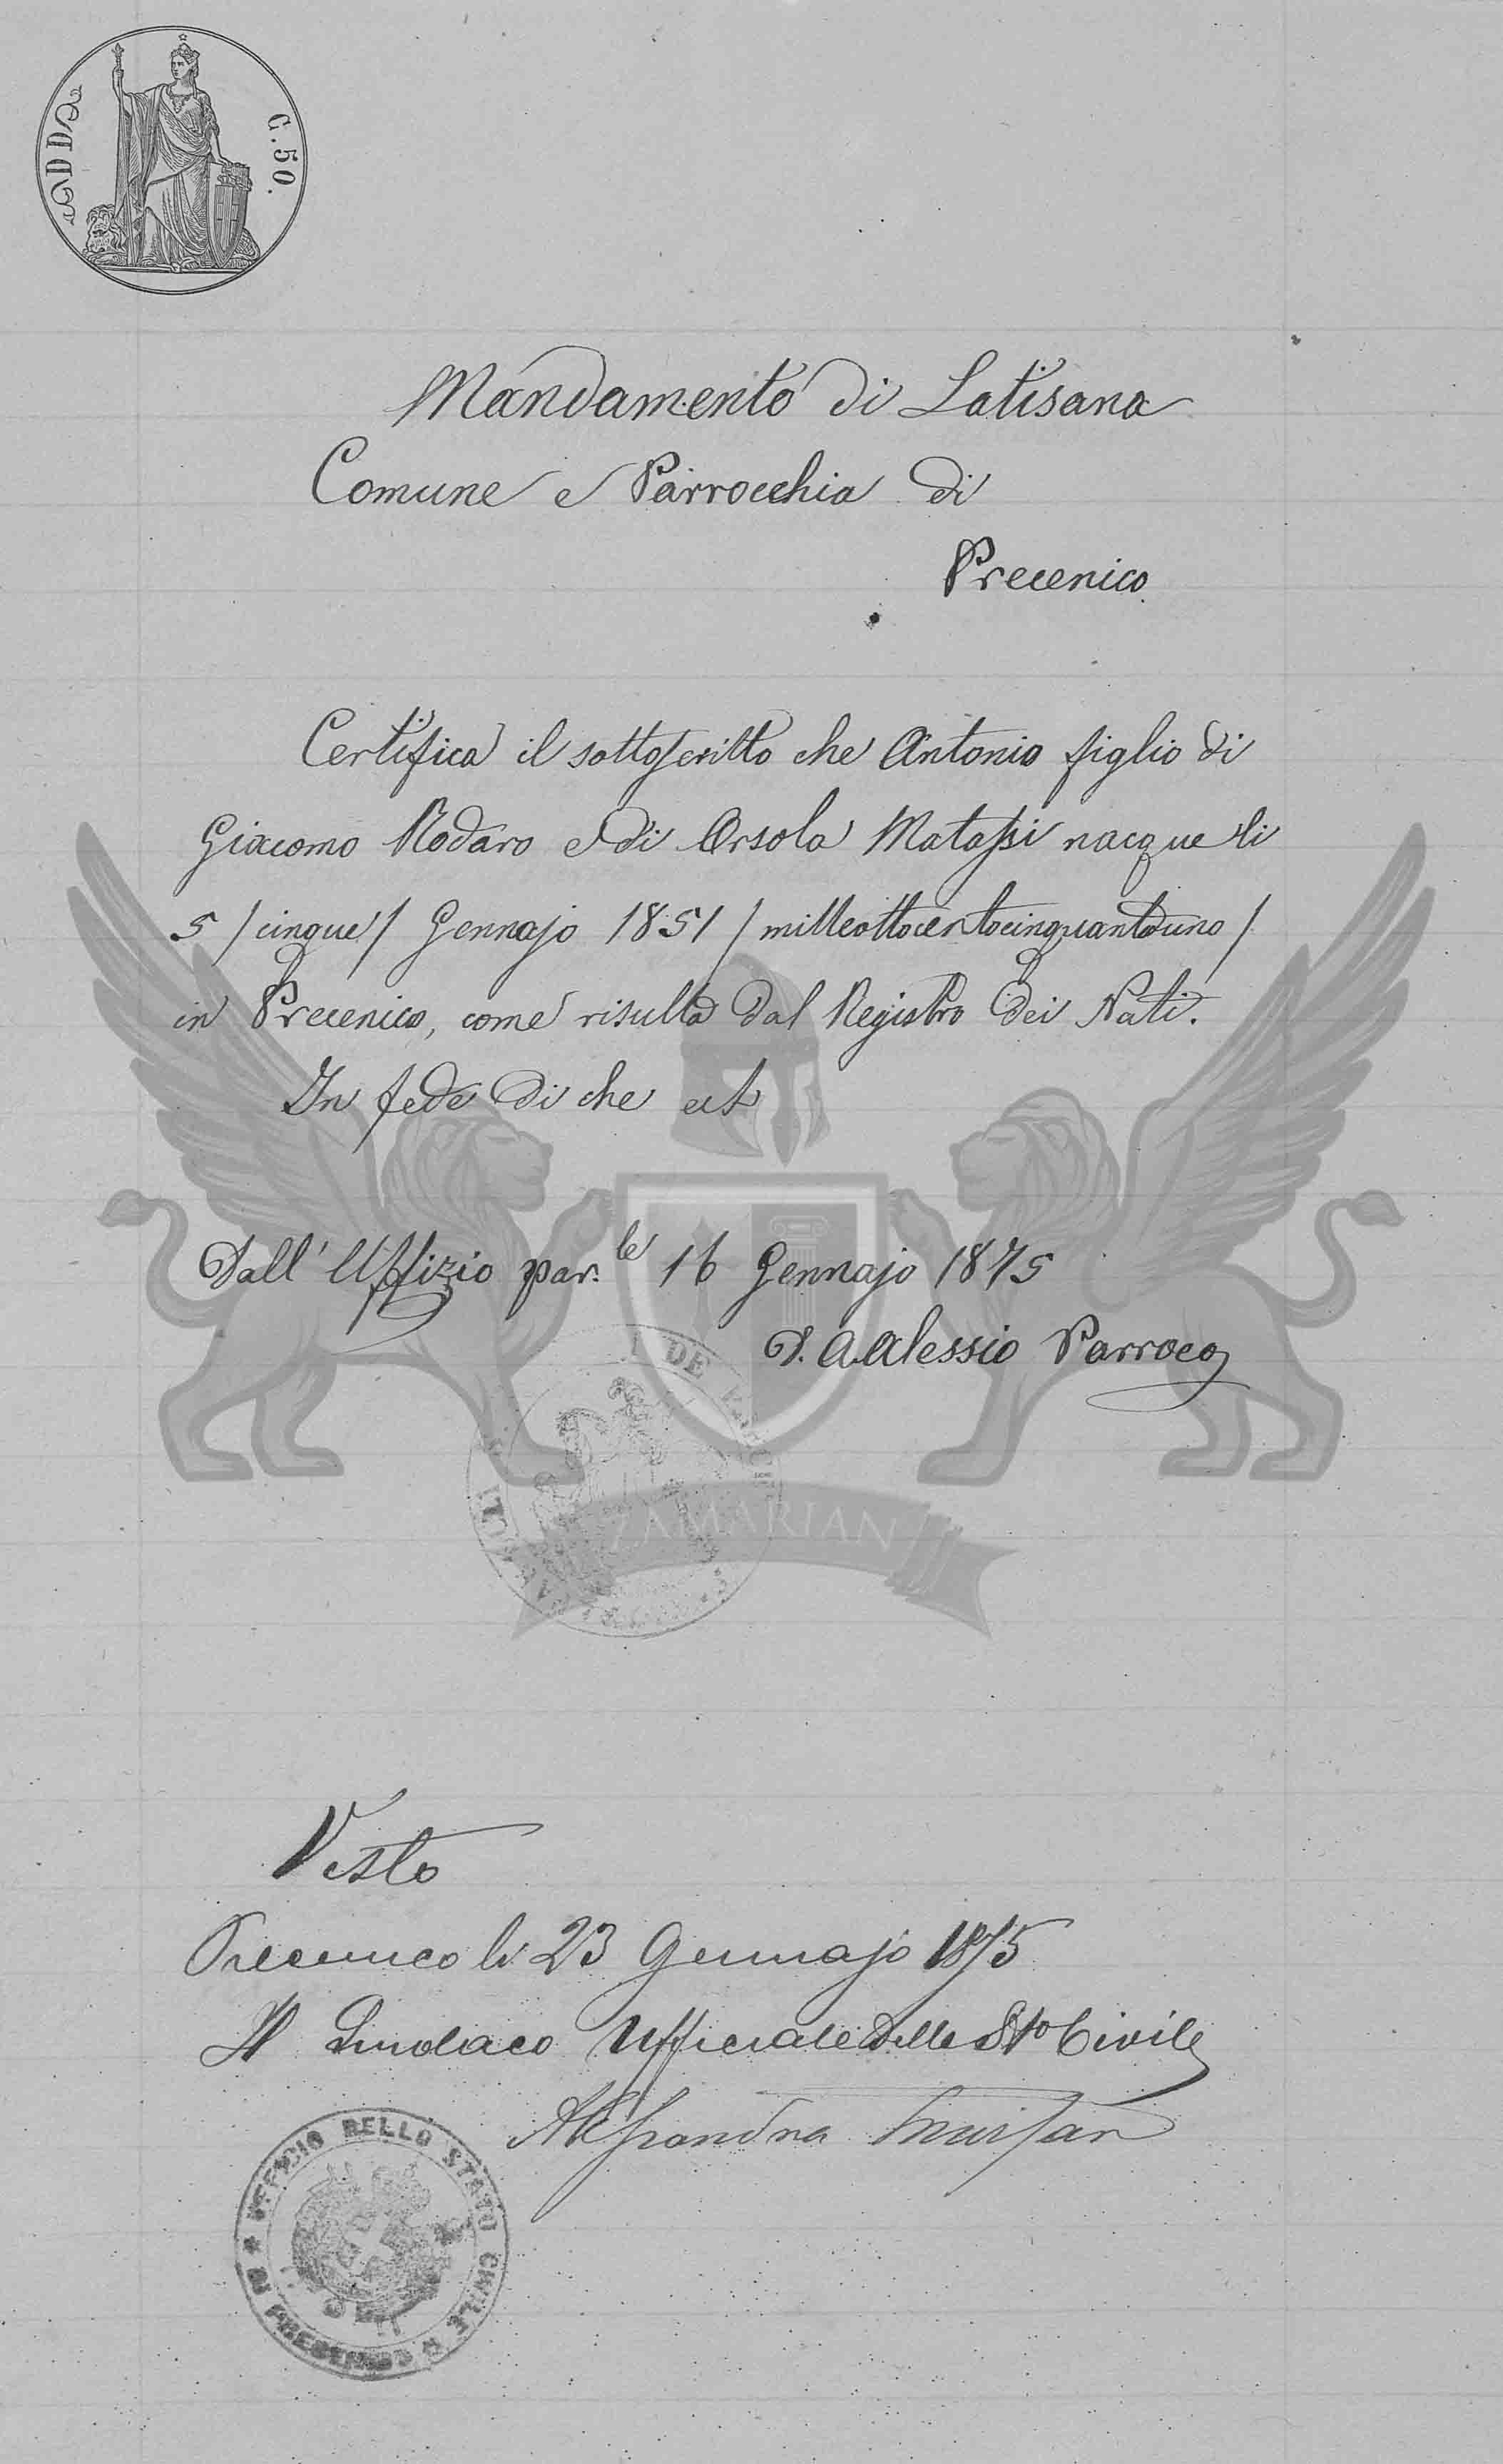 C. 50.
Mandamento di Latisana
Comune e Parrocchia di
Precenico
Certifica il sottoscritto che Antonio figlio di
Giacomo Nodaro e di Orsola Matassi nacque li
5 / cinque / Gennajo 1851 / milleottocentocinquantauno /
in Precenico, come risulta dal Registro dei Nati.
In fede di che
Dall' Uffizio par.le 16 Gennajo 1875
P. A. Alessio Parroco
DE
ZAMARIAN
Visto
Precenico li 23 Gennajo 1875
Il Sindaco Ufficiale dello Sto Civile
UFFICIO DELLO STATO CIVILE DI PRECENICO